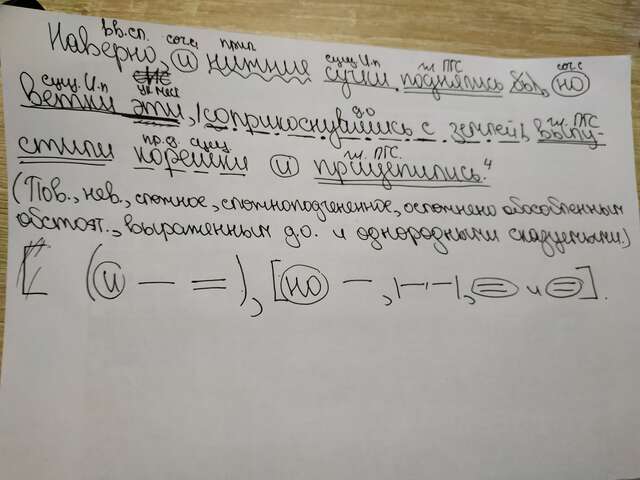 вв.сл. соч.с прил сущ И.п гл. ПГС соч.с
Наверно, и нижние сучки поднялись бы, но
сущ. И.п ук мест д.о гл. ПГС
ветки эти, |соприкоснувшись с землей|, выпу-
пр.д. сущ. гл. ПГС.
стили корешки и прицепились.⁴
(Пов., нев., сложное, сложноподчиненное, осложнено обособленным
обстоят., выраженным д.о. и однородными сказуемыми.)
[ (и — =), [но —, |—·—|, = и =].